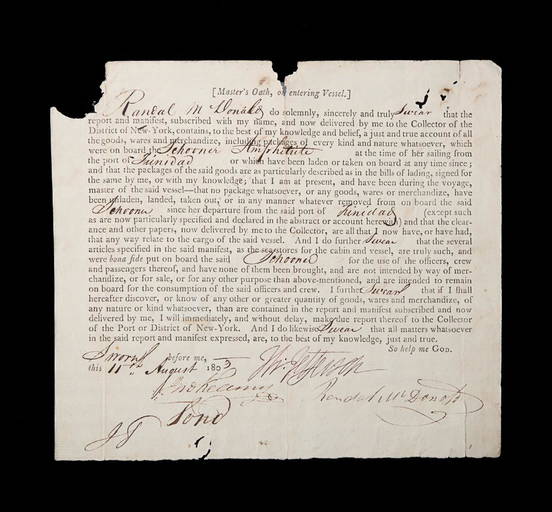 [Master's Oath, on entering Vessel.]
Randal McDonald do solemnly, sincerely and truly Swear that the
report and manifest, subscribed with my name, and now delivered by me to the Collector of the
District of New-York, contains, to the best of my knowledge and belief, a just and true account of all
the goods, wares and merchandize, including packages of every kind and nature whatsoever, which
were on board the Schooner Amphitrite at the time of her sailing from
the port of Trinidad or which have been laden or taken on board at any time since;
and that the packages of the said goods are as particularly described as in the bills of lading, signed for
the same by me, or with my knowledge; that I am at present, and have been during the voyage,
master of the said vessel—that no package whatsoever, or any goods, wares or merchandize, have
been unladen, landed, taken out, or in any manner whatever removed from on board the said
Schooner since her departure from the said port of Trinidad (except such
as are now particularly specified and declared in the abstract or account herewith) and that the clear-
ance and other papers, now delivered by me to the Collector, are all that I now have, or have had,
that any way relate to the cargo of the said vessel. And I do further Swear that the several
articles specified in the said manifest, as the sea stores for the cabin and vessel, are truly such, and
were bona fide put on board the said Schooner for the use of the officers, crew
and passengers thereof, and have none of them been brought, and are not intended by way of mer-
chandize, or for sale, or for any other purpose than above-mentioned, and are intended to remain
on board for the consumption of the said officers and crew. I further Swear that if I shall
hereafter discover, or know of any other or greater quantity of goods, wares and merchandize, of
any nature or kind whatsoever, than are contained in the report and manifest subscribed and now
delivered by me, I will immediately, and without delay, make due report thereof to the Collector
of the Port or District of New-York. And I do likewise Swear that all matters whatsoever
in the said report and manifest expressed, are, to the best of my knowledge, just and true.
So help me GOD.
Sworn before me,
this 11th August 1803
Randal McDonald